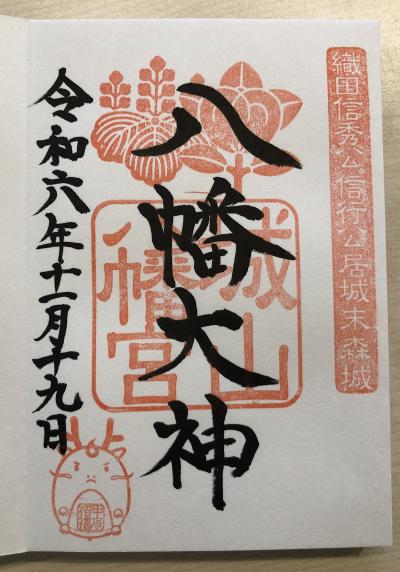 織田信秀公信行公居城末森城
八幡大神
城山
八幡宮
令和六年十一月十九日